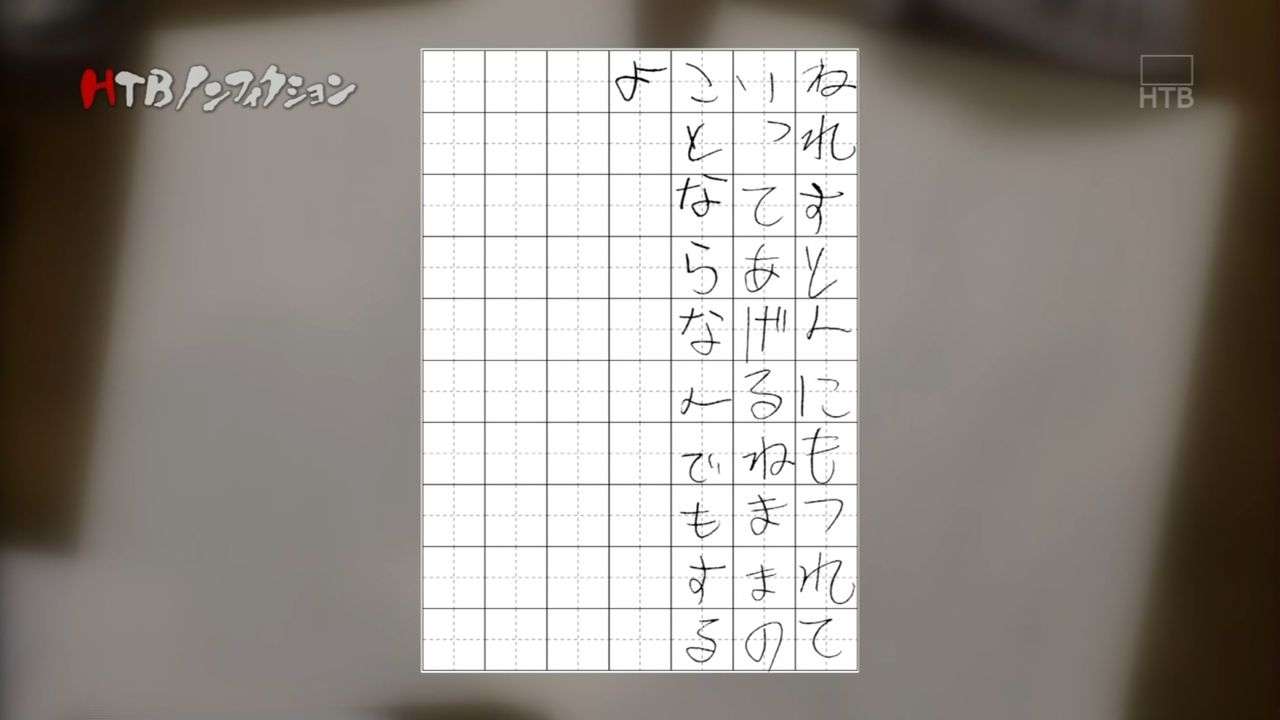 HTBノンフィクション
HTB
ねれすとんにもつれて
いってあげるねままの
ことならなんでもする
よ